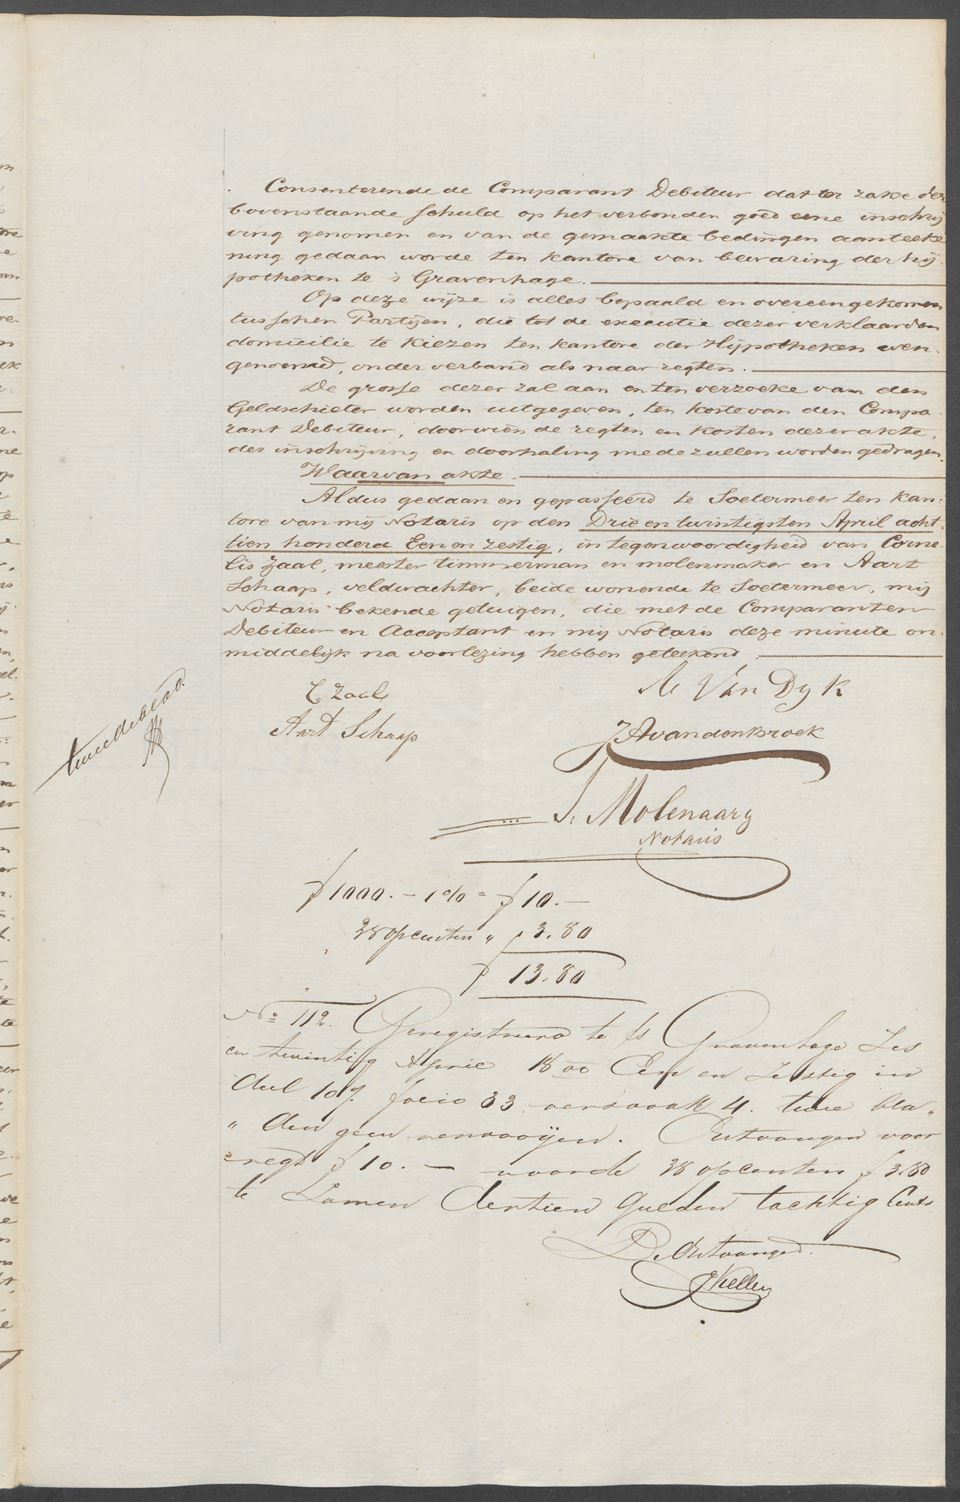 Consenterende de Comparant Debiteur dat ter zake der
bovenstaande schuld op het verbonden goed eene inschrij
ving genomen en van de gemaakte bedingen aanteeke
ning gedaan worde ten kantore van bewaring der hij
potheken te 's Gravenhage.
Op deze wijze is alles bepaald en overeengekomen
tusschen Partijen, die tot de executie dezer verklaarden
domicilie te kiezen ten kantore der Hijpotheken even
genoemd, onder verband als naar regten.
De grosse dezer zal aan en ten verzoeke van den
Geldschieter worden uitgegeven, ten koste van den Compa
rant Debiteur, door wien de regten en kosten dezer akte,
des inschrijving en doorhaling mede zullen worden gedragen
Waarvan akte.
Aldus gedaan en gepasseerd te Soetermeer ten kan
tore van mij Notaris op den Drie en twintigsten April acht
tien honderd Een en zestig, in tegenwoordigheid van Corne
lis Zaal, meester timmerman en molenmaker en Aart
Schaap, veldwachter, beide wonende te Soetermeer, mij
Notaris bekende getuigen, die met de Comparanten
Debiteur en Acceptant en mij Notaris deze minute on
middelijk na voorlezing hebben geteekend.
C Zaal
Aart Schaap
van Dyk
JA van den Broek
tweede blad
J. Molenaar
Notaris
ƒ 1000.- 1% = ƒ 10.-
38 opcenten " 3.80
ƒ 13.80
No 112. Geregistreerd te 's Gravenhage Zes
en twintig April 1800 Een en Zestig in
deel 107. folio 33 versovak 4. twee bla
" den geen renvooijen. Ontvangen voor
regt ƒ 10.- voorde 38 opcenten ƒ 3.80
te Zamen dertien Gulden tachtig Cents
De Ontvanger